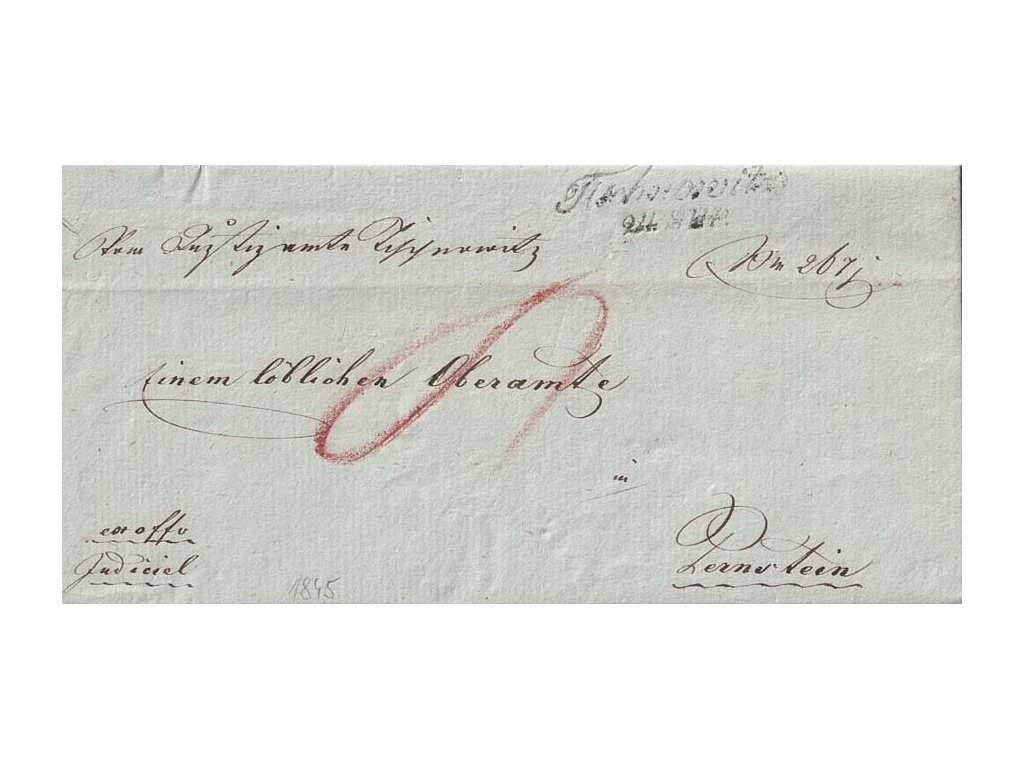 Tischnowitz
24.
Vom Justizamte Tischnowitz
Nro 267j
Einem löblichen Oberamte
in
ex offo
Judiciel
Pernstein
1845